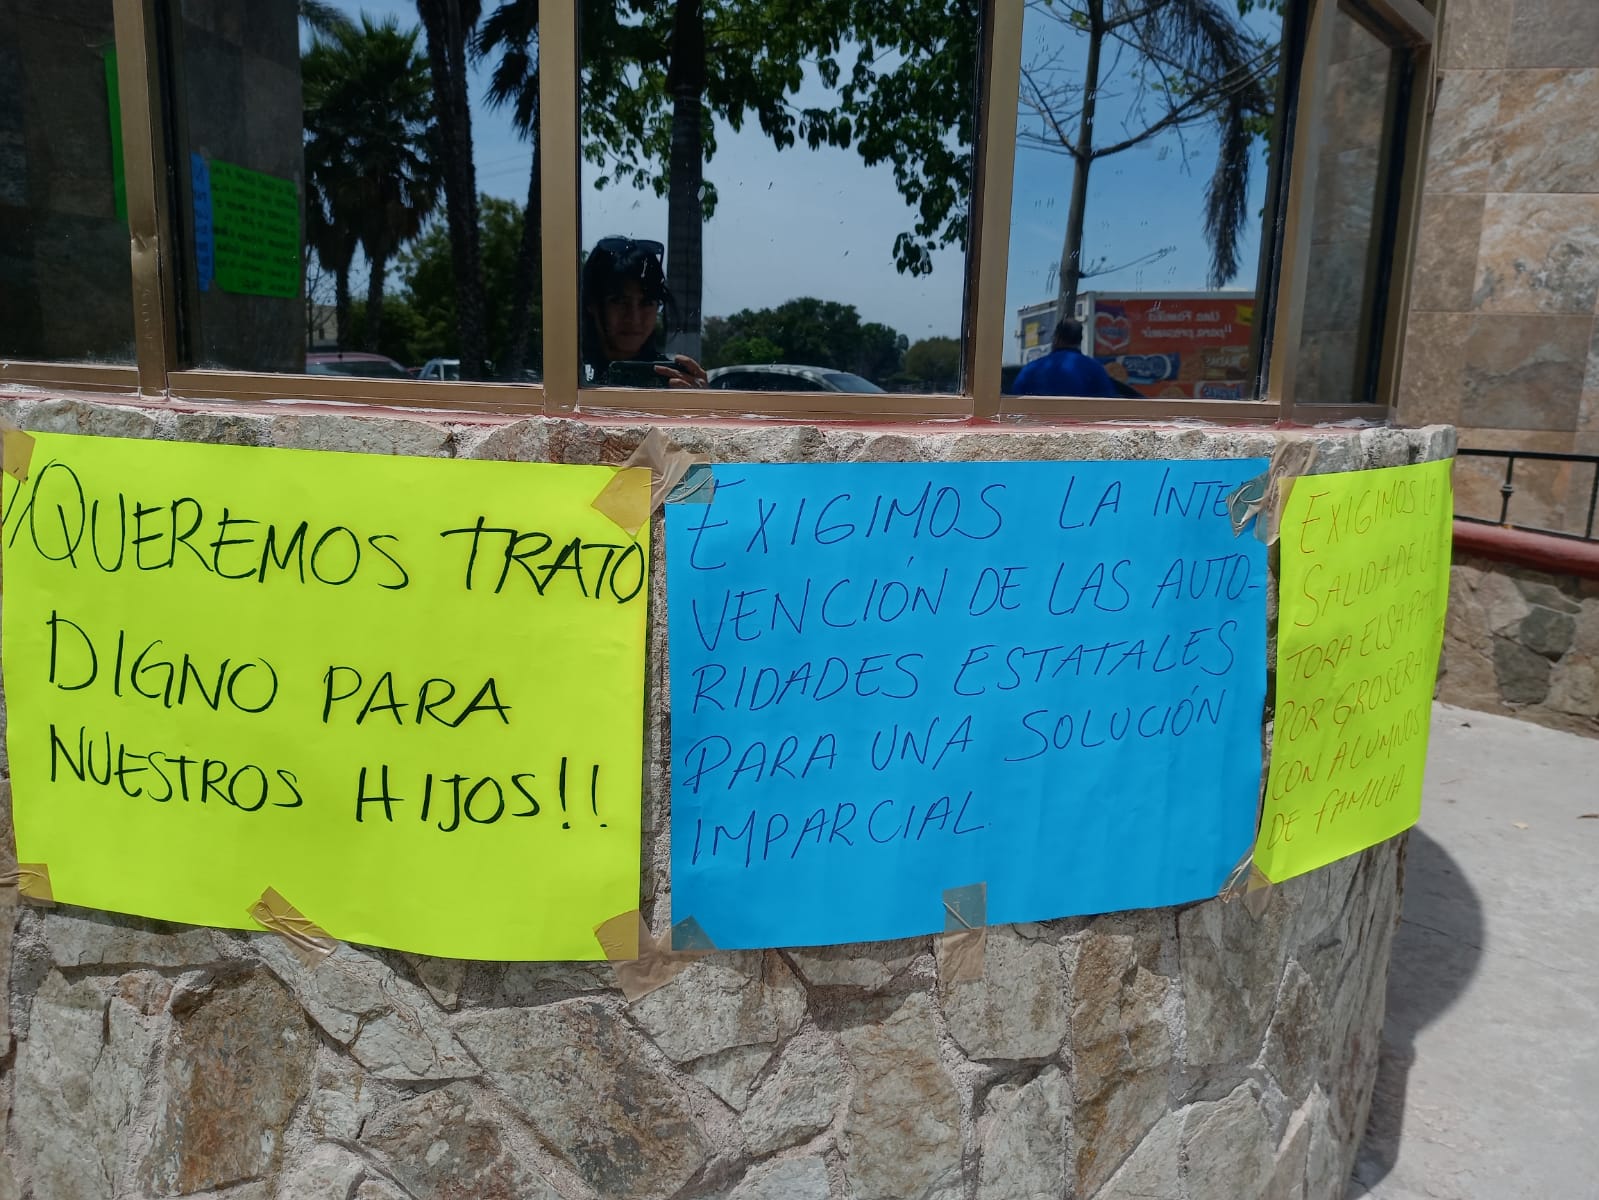 ¡¡QUEREMOS TRATO
DIGNO PARA
NUESTROS HIJOS!!
EXIGIMOS LA INTE
VENCIÓN DE LAS AUTO-
RIDADES ESTATALES
PARA UNA SOLUCIÓN
IMPARCIAL.
EXIGIMOS LA
SALIDA DE LA
TORA ELSA
POR GROSERA
CON ALUMNOS
DE FAMILIA
Una Familia
¡¡para presumir